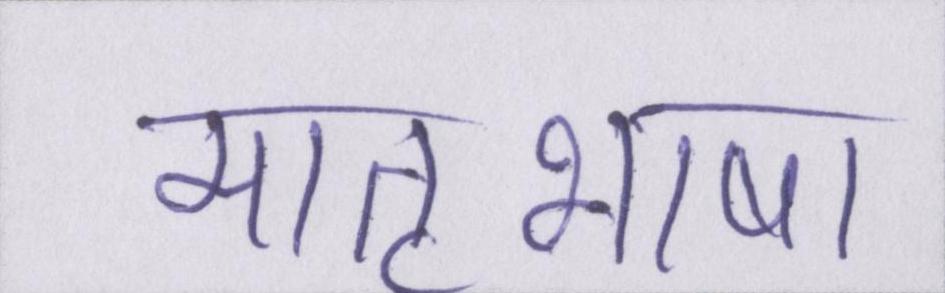 मातृभाषा